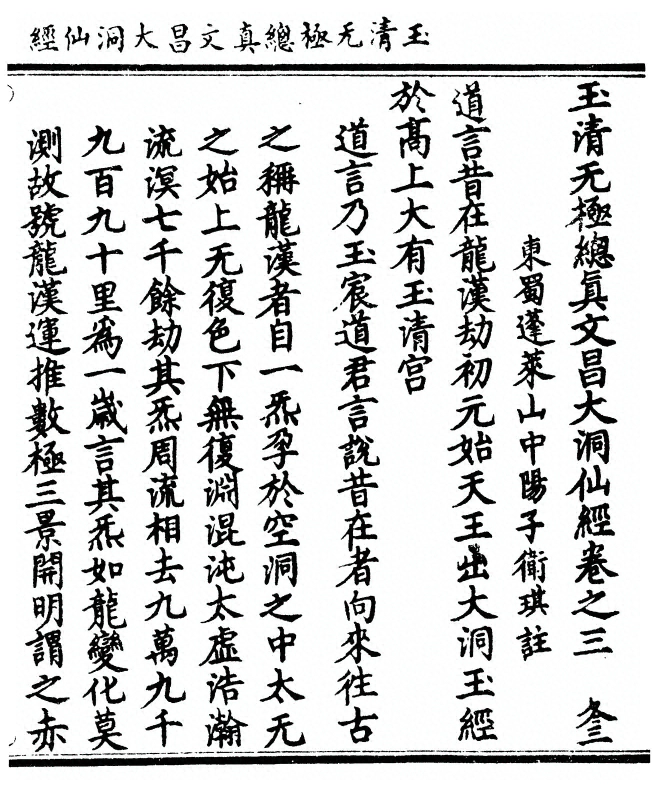 玉清无極總真文昌大洞仙經
玉清无極總眞文昌大洞仙經卷之三 冬三
東蜀蓬萊山中陽子衛琪註
道言昔在龍漢劫初元始天王出大洞玉經
於高上大有玉清宫
道言乃玉宸道君言說昔在者向來往古
之稱龍漢者自一炁孕於空洞之中太无
之始上无復色下無復淵混沌太虛浩瀚
流溟七千餘劫其炁周流相去九萬九千
九百九十里為一歲言其炁如龍變化莫
測故號龍漢運推數極三景開明謂之赤